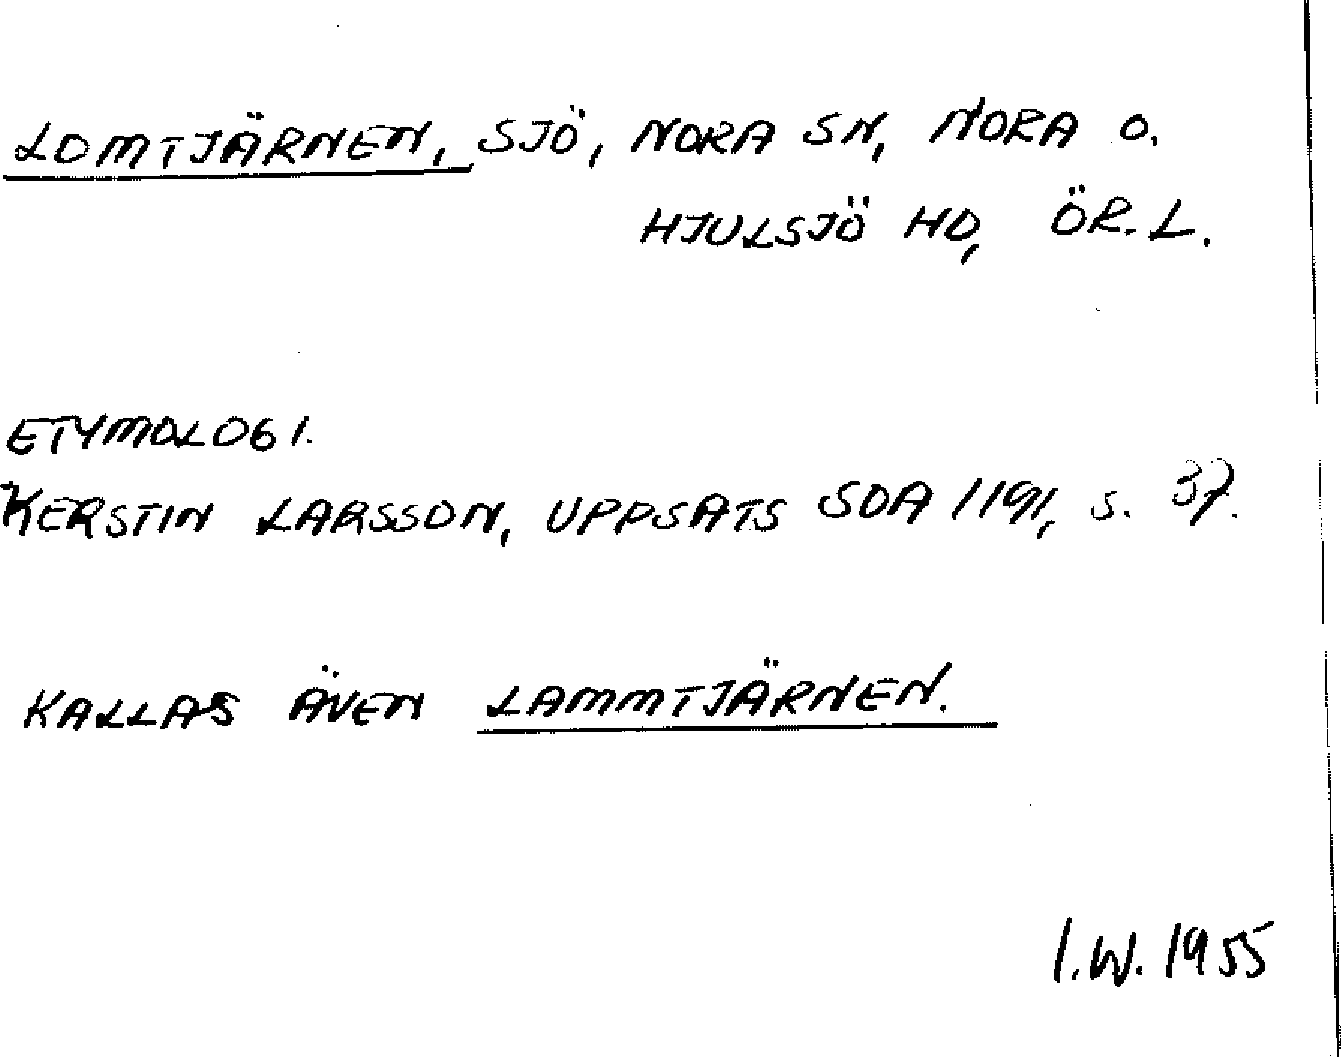 LOMTJÄRNEN, SJÖ, NORA SN, NORA O.
HJULSJÖ HD, ÖR. L.
ETYMOLOGI.
KERSTIN LARSSON, UPPSATS SOA 1191, S. 37.
KALLAS ÄVEN LAMMTJÄRNEN.
I.W. 1955